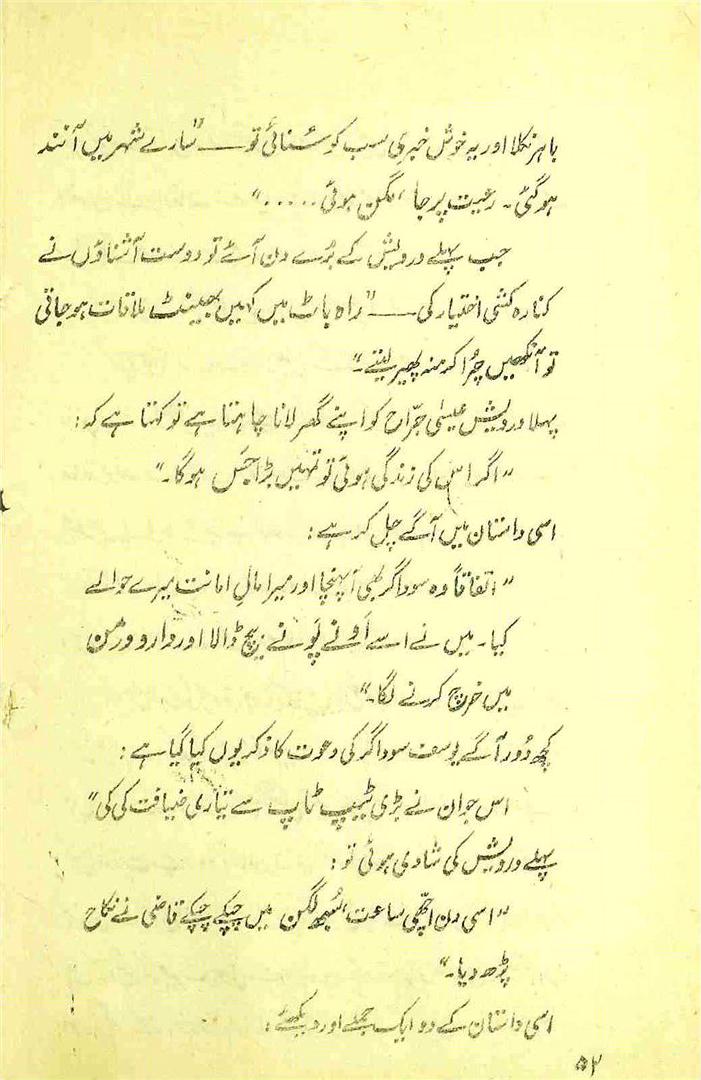 باہر نکلا اور یہ خوش خبری سب کو سُنائی تو ــــ "سارے شہر میں آنند
ہوگئی۔ رعیت پرجا، مگن ہوئی....."
جب پہلے درویش کے بُرے دن آئے تو دوست آشناؤں نے
کنارہ کشی اختیار کی ــــ "راہ باٹ میں کہیں بھینٹ ملاقات ہوجاتی
تو آنکھیں چُرا کر منہ پھیر لیتے۔"
پہلا درویش عیسیٰ جرّاح کو اپنے گھر لانا چاہتا ہے تو کہتا ہے کہ:
"اگر اس کی زندگی ہوئی تو تمہیں بڑا جَس ہوگا۔"
اسی داستان میں آگے چل کر ہے:
"اتفاقاً وہ سوداگر بھی آ پہنچا اور میرا مالِ امانت میرے حوالے
کیا۔ میں نے اسے اَونے پَونے بیچ ڈالا اور دارو درمن
میں خرچ کرنے لگا۔"
کچھ دُور آگے یوسف سوداگر کی دعوت کا ذکر یوں کیا گیا ہے:
اس جوان نے بڑی ٹیپ ٹاپ سے تیاری ضیافت کی کی"
پہلے درویش کی شادی ہوئی تو:
"اسی دن اچھی ساعت، سُبھ لگن میں چپکے چپکے قاضی نے نکاح
پڑھ دیا۔"
اسی داستان کے دو ایک جملے اور دیکھئے:
۵۲